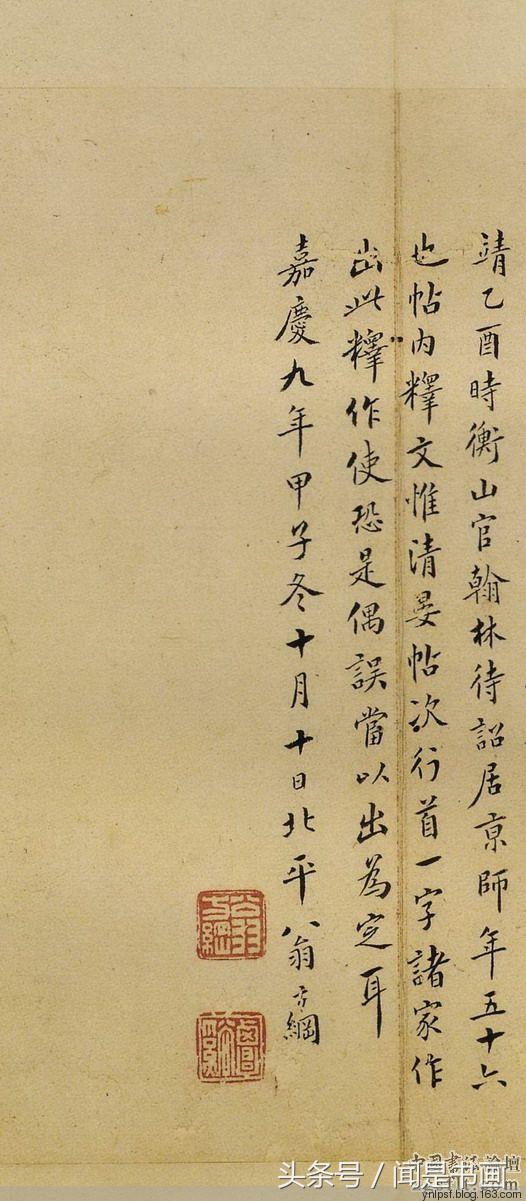 靖乙酉時衡山官翰林待詔居京師年五十六
也帖内釋文惟清晏帖次行首一字諸家作
出此釋作使恐是偶誤當以出為定耳
嘉慶九年甲子冬十月十日北平翁方綱
翁方綱
覃谿
中国書法論壇
头条号／闻是书画
ynlpsf.blog.163.com